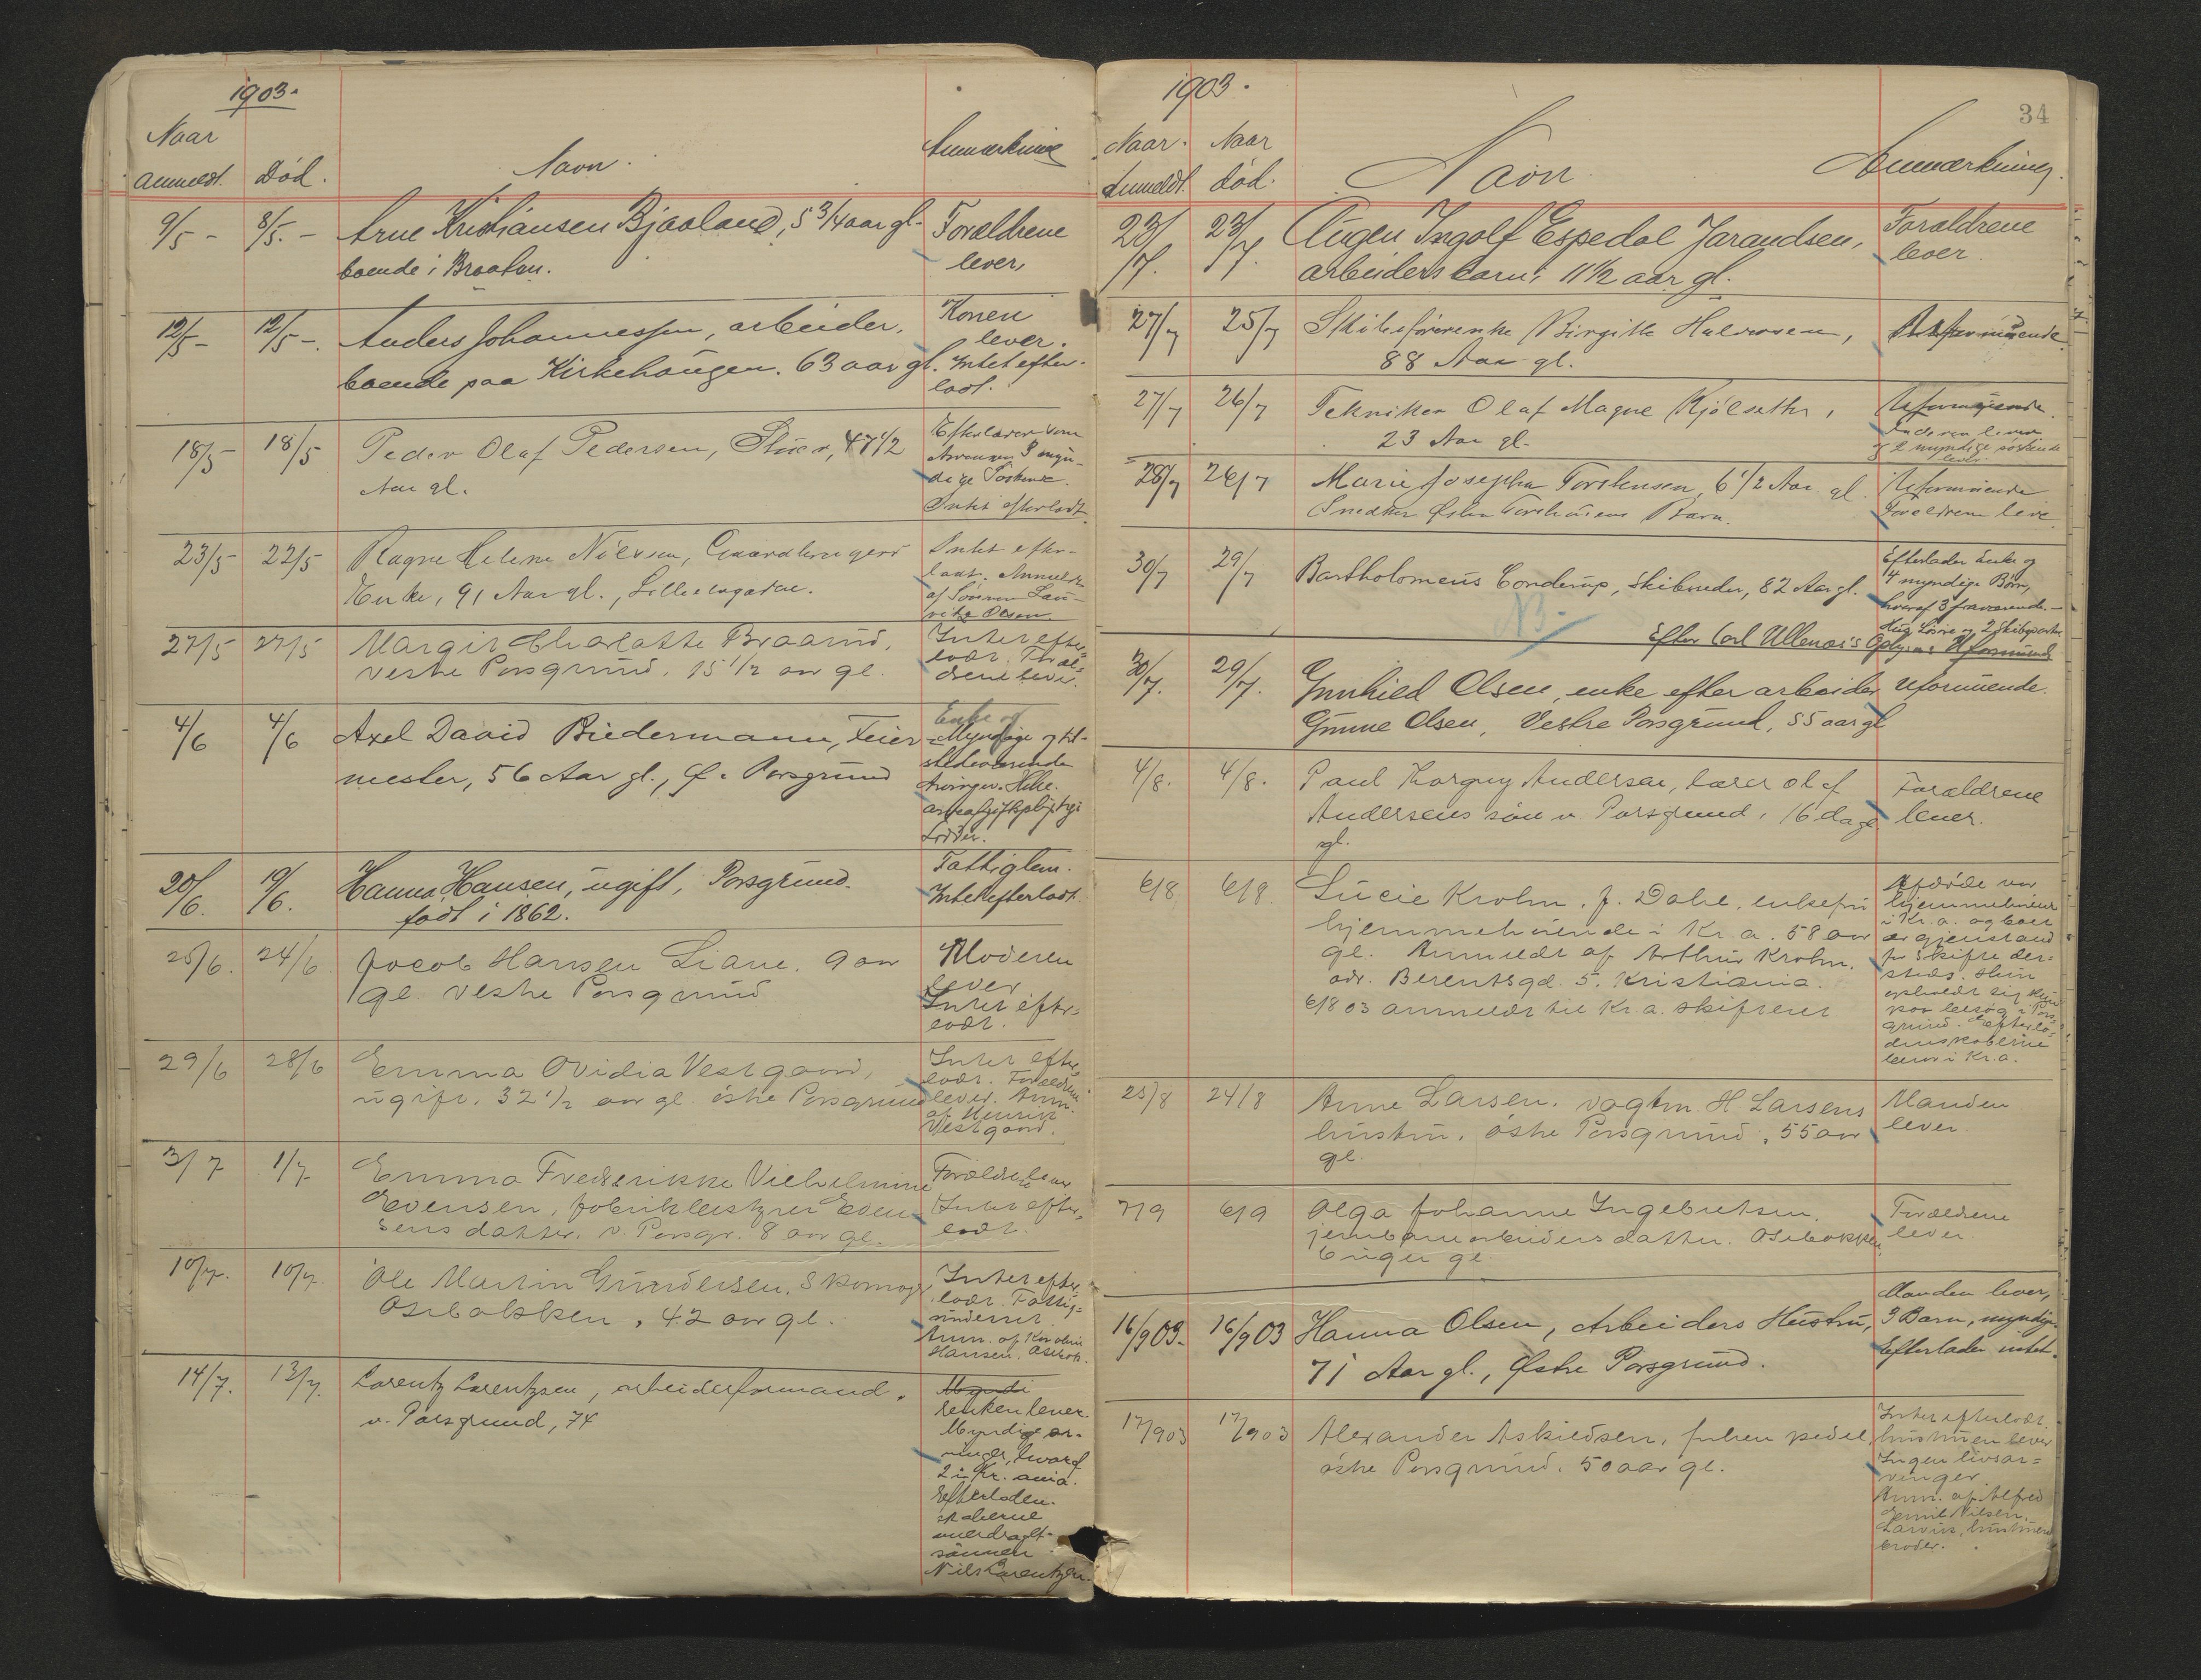 1903.
Naar
anmeldt. Død. Navn. Anmærkning
9/5 - 8/5. - Arne Kristiansen Bjaaland, 5 3/4 aar gl. Forældrene
boende i Braaten. lever,
12/5 - 12/5 -. Anders Johannessen, arbeider, Konen
lever.
boende paa Kirkehaugen. 63 aar gl. Intet efter-
ladt.
18/5 18/5 Peder Olaf Pedersen, Stuer, 47 1/2 Efterlader som
Aar gl. Arvinger 3 myn-
dige Søskende.
Intet efterladt.
23/5 22/5 Ragne Helene Nilsen, Gaardbrugers Intet efter-
Enke, 91 Aar gl., Lilleelvgaden. ladt. Anmeldt
af Lau-
ritz Olsen
27/5 27/5 Margit Charlotte Braarud, Intet efter=
vestre Porsgrund. 15 1/2 aar gl. ladt. Foræl=
drene lever.
4/6 4/6 Axel David Biedermann, Feier Enke og
mester, 56 Aar gl., Ø. Porsgrund Myndige og til-
stedeværende
Arvinger. Ikke
arveafgiftspligtige
Lodder.
20/6. 19/6. Hanna Hansen, ugift, Porsgrund. Fattiglem.
født i 1862. Intet efterladt.
25/6. 24/6 Jacob Hansen Liane. 9 aar Moderen
gl. vestre Porsgrund lever
Intet efter=
ladt.
29/6 28/6 Emma Ovidia Vestgaard, Intet efter
ugift. 32 1/2 aar gl. østre Porsgrund ladt. Forældrene
lever. Anm.
af Henrik
Vestgaard.
3/7 1/7. Emma Frederikke Vilhelmine Forældrene lever
Evensen, fabrikbestyrer Even= Intet efter=
sens datter. v. Porsgr. 8 aar gl. ladt.
10/7. 10/7. Ole Martin Gundersen, Skomager Intet efter
Osebakken, 42 aar gl. ladt. Fattig=
understt.
Anm. af Karoline
Hansen. Osebak.
14/7. 13/7. Lorentz Lorentzen, arbeiderformand, Myndi
v. Porsgrund, 74 Enken lever.
Myndige ar-
vinger, hvoraf
2 i Kr.ania.
Efterladen-
skaberne
uverdragt
sønnen
Nils Lorentzen.
1903.
34
Naar. Naar
Anmeldt. død. Navn Anmærkning.
23/7. 23/7. Eugen Ingolf Espedal Jarandsen, Forældrene
arbeidersbarn, 11 1/2 aar gl. lever.
27/7 25/7 Skibsførerenke Birgitte Halvorsen, Uformuende
88 Aar gl.
27/7 26/7 Tekniker Olaf Magne Kjølseth, Uformuende.
23 Aar gl. lever
og 2 myndige søskende
lever.
28/7 26/7 Marie Josepha Torstensen, 6 1/2 Aar gl. Uformuende
Snedker Torstensens Barn. Forældrene leve.
30/7 29/7 Bartholomeus Conderup, Skibsreder, 82 Aar gl. Efterlader Enke og
4 myndige Børn,
hvoraf 3 fraværende.
NB
Efter Carl Ullenæs's Oplysn: Uformuende
30/7. 29/7. Gunhild Olsen, enke efter arbeider Uformuende.
Gunne Olsen, Vestre Porsgrund, 55 aar gl
4/8. 4/8. Paul Thorguy Andersen, lærer Olaf Forældrene
Andersens søn v. Porsgrund, 16 dage lever.
gl.
6/8 6/8. Lucie Krohn, f. Dahl, enkefru Afdøde var
hjemmehørende i Kr.a. 58 aar hjemmehørende
gl. Anmeldt af Arthur Krohn, i Kr.a. og boet
adr. Berentsgd. 5. Kristiania. er gjenstand
6/8 03 anmeldt til Kr.a. skifteret for skifte der=
steds. Hun
opholdt sig kun
paa besøg i Pors=
grund. Efterla=
denskaberne
lever i Kr.a.
25/8 24/8 Anne Larsen. vogtm. H. Larsens Manden
hustru, østre Porsgrund, 55 aar lever
gl.
7/9 6/9 Olga Johanne Ingebretsen, Forældrene
jernbanearbeiders datter. Osebakken, lever.
6 uger gl
16/9 03. 16/9 03 Hanna Olsen, Arbeiders Hustru, Manden lever,
3 Barn, myndige.
71 Aar gl., Østre Porsgrund. Efterlader intet.
17/9 03 17/9 03 Alexander Askildsen, pedel Intet efterladt.
østre Porsgrund. 50 aar gl. hustruen lever
Ingen livsar=
vinger.
Anm. af Alfred
Emil Nilsen,
Larvik, hustruens
broder.